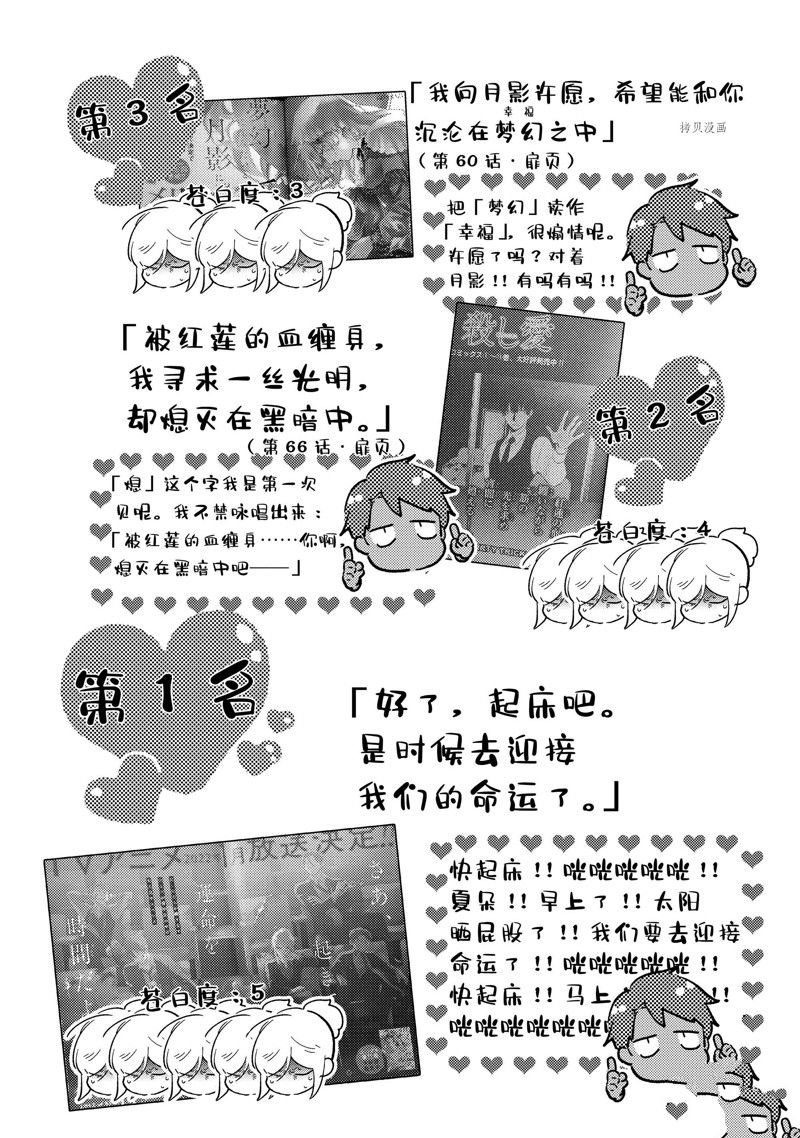 第3名
「我向月影许愿，希望能和你
幸福
沉沦在梦幻之中」
（第60话·扉页）
拷贝漫画
夢幻
月影に
苍白度：3
把「梦幻」读作
「幸福」，很煽情呢。
许愿了吗？对着
月影！！有吗有吗！！
「被红莲的血缠身，
我寻求一丝光明，
却熄灭在黑暗中。」
（第66话·扉页）
殺し愛
第2名
苍白度：4
「熄」这个字我是第一次
见呢。我不禁咏唱出来：
「被红莲的血缠身……你啊，
熄灭在黑暗中吧——」
第1名
「好了，起床吧。
是时候去迎接
我们的命运了。」
TVアニメ2022年1月放送決定!!
さあ、
起き
運命を
時間だ
苍白度：5
快起床！！咣咣咣咣咣！！
夏朵！！早上了！！太阳
晒屁股了！！我们要去迎接
命运了！！咣咣咣咣咣！！
快起床！！马上
！！
咣咣咣咣咣